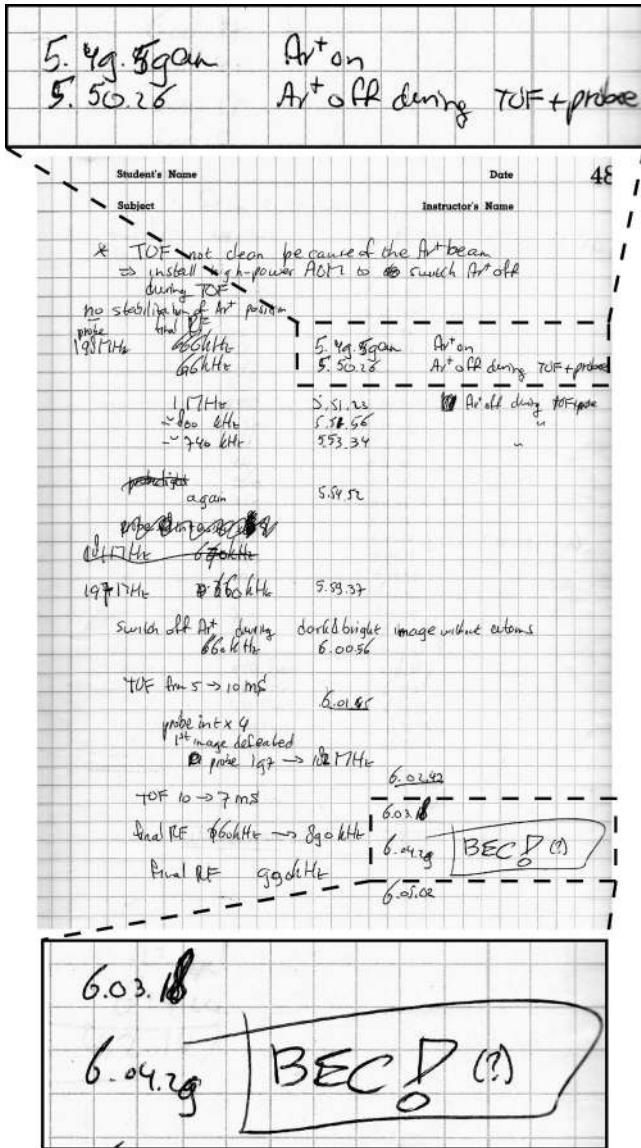 5.49.59am Ar⁺ on
5.50.26 Ar⁺ off during TOF + probe
Student's Name Date 48
Subject Instructor's Name
* TOF not clean because of the Ar⁺ beam
⇒ install high-power AOM to switch Ar⁺ off
during TOF
no stabilization of Ar⁺ position
probe final RF
198MHz 660kHz 5.49.59am Ar⁺ on
66kHz 5.50.26 Ar⁺ off during TOF + probe
1 MHz 5.51.23 Ar⁺ off during TOF + probe
~ 800 kHz 56 "
~ 740 kHz 5.53.34 "
again 5.54.52
probe
MHz 660kHz
197MHz 660kHz 5.59.37
switch off Ar⁺ during dark & bright image without atoms
660kHz 6.00.56
TOF from 5 → 10 ms
6.01.45
probe int x 4
1st image defeated
probe 197 → MHz
6.02.42
TOF 10 → 7 ms
6.03.18
final RF 660kHz → 890 kHz 6.04.29 BEC! (?)
final RF 990kHz
6.05.02
6.03.18
6.04.29 BEC! (?)